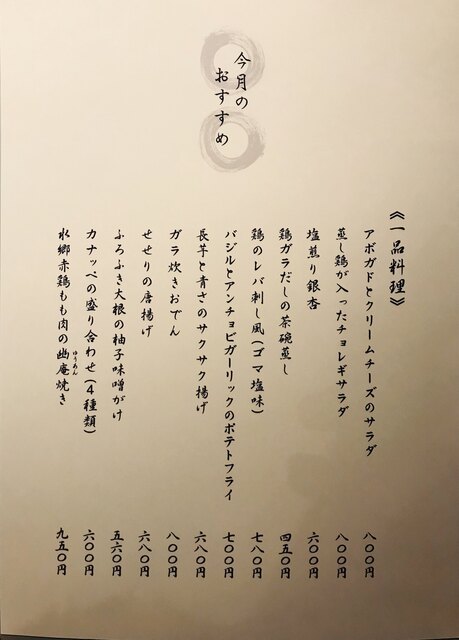 今月の
おすすめ
《一品料理》
アボガドとクリームチーズのサラダ 八〇〇円
蒸し鶏が入ったチョレギサラダ 八〇〇円
塩煎り銀杏 六〇〇円
鶏ガラだしの茶碗蒸し 四五〇円
鶏のレバ刺し風(ゴマ塩味) 七八〇円
バジルとアンチョビガーリックのポテトフライ 七〇〇円
長芋と青さのサクサク揚げ 六八〇円
ガラ炊きおでん 八〇〇円
せせりの唐揚げ 六八〇円
ふろふき大根の柚子味噌がけ 五六〇円
カナッペの盛り合わせ(4種類) 六〇〇円
水郷赤鶏もも肉の幽庵焼き 九五〇円
ゆうあん